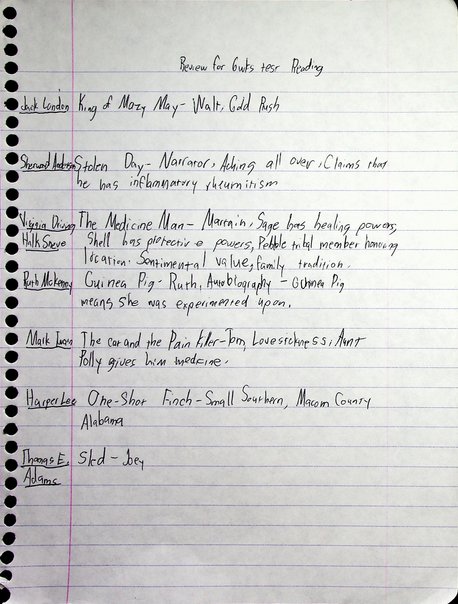 Review for 6wks test Reading
Jack London King of Mazy May - Walt, Gold Rush
Sherwood Anderson Stolen Day - Narrator, Aching all over, Claims that
he has inflammatory rheumitism
Virginia Driving The Medicine Man - Martnin, Sage has healing powers,
Halk Sneve Shell has protective powers, Pebble tribal member honoring
location. Sentimental value, family tradition.
Ruth McKenney Guinea Pig - Ruth, Autobiography - Guinea Pig
means she was experimented upon.
Mark Twain The cat and the Pain Killer - Tom, Lovesickness, Aunt
Polly gives him medicine.
Harper Lee One-Shot Finch - Small Southern, Macom County
Alabama
Thomas E. Sled - Joey
Adams